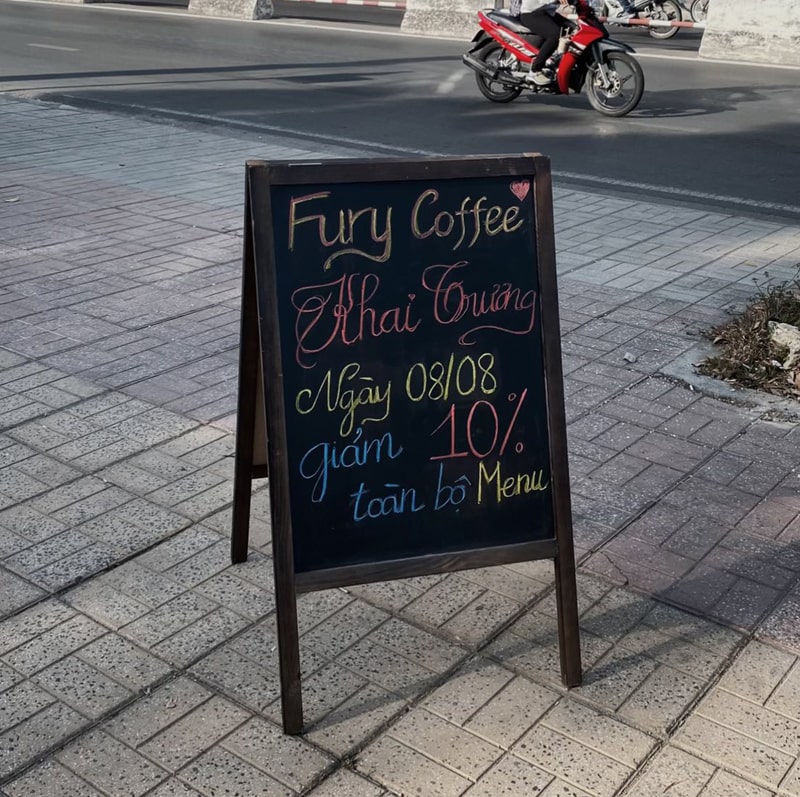 Fury Coffee
Khai Trương
Ngày 08/08
giảm 10%
toàn bộ Menu